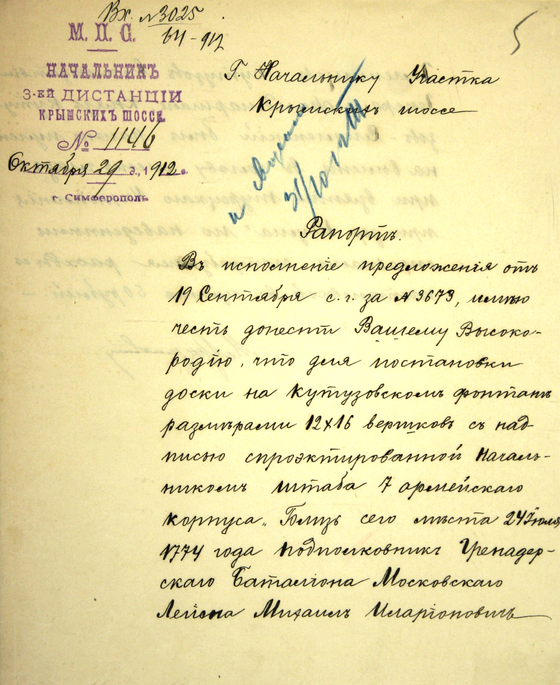 Вх. № 3025
5
М. П. С.
НАЧАЛЬНИКЪ
3-ей ДИСТАНЦІИ
КРЫМСКИХЪ ШОССЕ
№ 1146
Октября 29 д. 1912 г.
г. Симферополь
Г. Начальнику Участка
Крымскихъ шоссе
31/10
Рапортъ.
Въ исполненіе предложенія отъ
19 Сентября с. г. за № 3673, имѣю
честь донести Вашему Высоко-
родію, что для постановки
доски на Кутузовскомъ фонтанѣ
размѣрами 12х16 вершковъ съ над-
писью спроэктированной Началь-
никомъ штаба 7 армейскаго
корпуса „Близь сего мѣста 24 Іюля
1774 года Подполковникъ Гренадер-
скаго Баталіона Московскаго
Легіона Михаилъ Иларіоновичъ